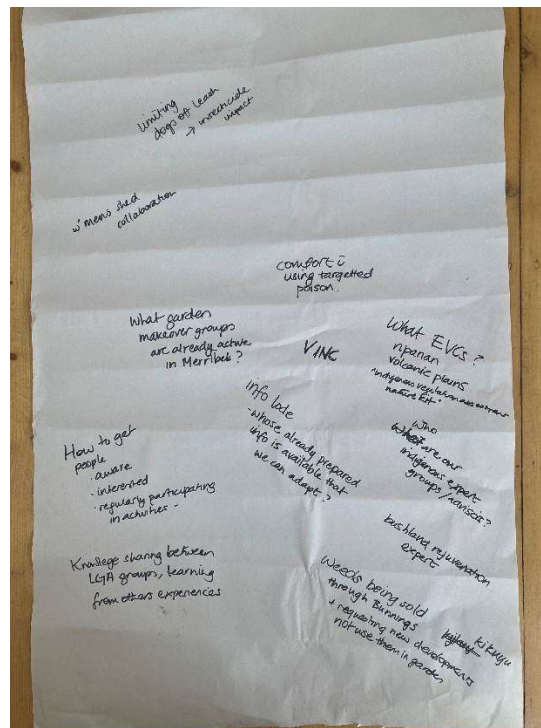 limiting
dogs of leash
→ insecticide
impact
w' mens shed
collaboration
comfort c̄
using targetted
poison.
What garden
makeover groups
are already active
in Merribek?
VINC
What EVCs?
riparian
volcanic plains
nature kit"
info lode
- whose already prepared
info is available that
we can adapt?
Who
are our
indigenous expert
groups / advisors?
How to get
people
· aware
· interested
· regularly participating
in activities -
bushland rejuvenation
expert
Knowlege sharing between
LGA groups, learning
from others experiences
Weeds being sold
through Bunnings
kikuyu
+ requesting new developments
not use them in garden